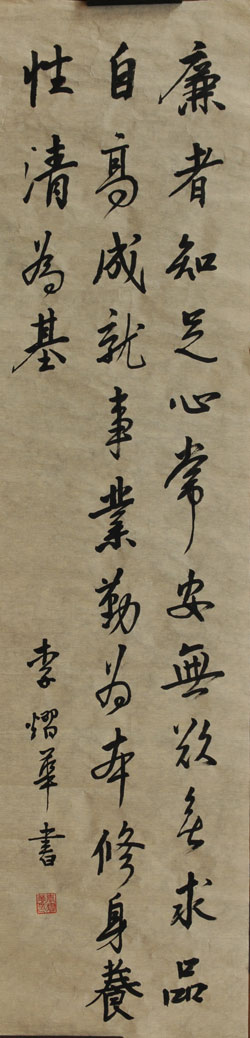 廉者知足心常安無欲無求品
自高成就事業勤为本修身養
性清為基
李熠華書